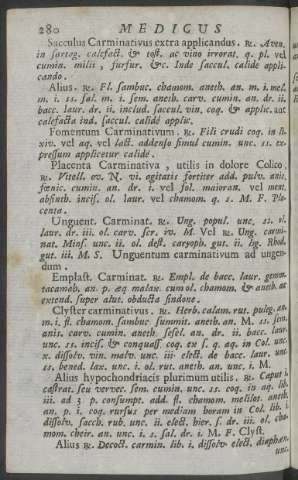 280 MEDICUS
Sacculus Carminativus extra applicandus. ℞. Aven.
in sartag. calefact. & tost. ac vino irrorat. q. pl. vel
cumin. milii, furfur. &c. Inde saccul. calide appli-
cando.
Alius. ℞. Fl. sambuc. chamom. aneth. an. m. i. mel.
m. i. ss. sal. m. i. sem. aneth. carv. cumin. an. dr. ii.
bacc. laur. dr. ii. includ. saccul. vin. coq. & applic. aut
calefacta ind. saccul. calidé applic.
Fomentum Carminativum. ℞. Fili crudi coq. in li-
xiv. vel aq. vel lact. addensa simul cumin. unc. ss. ex-
pressum applicetur calidé.
Placenta Carminativa, utilis in dolore Colico,
℞. Vitell. ov. N. vi. agitatis fortiter add. pulv. anis.
fœnic. cumin. an. dr. i. vel fol. maioran. vel ment.
absinth. incis. ol. laur. vel chamom. q. s. M. F. Pla-
centa.
Unguent. Carminat. ℞. Ung. popul. unc. ss. ol.
laur. dr. iii. ol. carv. scr. iv. M. Vel ℞. Ung. carmi-
nat. Mins. unc. ii. ol. dest. caryoph. gut. ii. lig. Rhod.
gut. iii. M. S. Unguentum carminativum ad ungen-
dum.
Emplast. Carminat. ℞. Empl. de bacc. laur. gumm.
tacamah. an. p. æq. malax. cum ol. chamom. & aneth. ac
extend. super alut. obducta sindone.
Clyster carminativus. ℞. Herb. calam. rut. puleg. an.
m. i. fl. chamom. sambuc. summit. aneth. an. M. ss. sem.
anis. carv. cumin. aneth. sisel. an. dr. ii. bacc. laur.
unc. ss. incis. & conquass. coq. ex s. q. aq. in Col. unc.
x. dissolv. vin. malv. unc. iii. elect. de bacc. laur. unc.
ss. bened. lax. unc. i. ol. rut. aneth. an. unc. i. M.
Alius hypochondriacis plurimum utilis. ℞. Caput i.
castrat. seu vervec. sem. cumin. unc. ss. coq. in aq. lib.
iii. ad 3. p. consumpt. add. fl. chamom. melilot. aneth.
an. p. i. coq. rursus per mediam horam in Col. lib. i.
dissolv. sacch. rub. unc. ii. elect. hier. s. dr. iii. ol. cha-
mom. cheir. an. unc. i. s. sal. dr. i. M. F. Clyst.
Alius ℞. Decoct. carmin. lib. i. dissolv. elect. diaphœn.
unc.